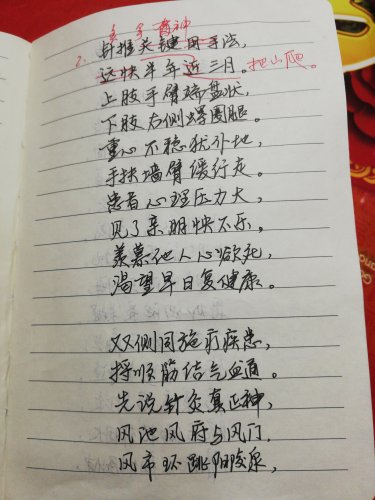 2. 针推关键用手法，
远快半年近三月。把山爬。
上肢手臂端盘状，
下肢右侧蜉圈腿。
重心不稳犹扑地，
手扶墙臂缓行走。
患者心理压力大，
见了亲朋快不乐。
羡慕他人心欲死，
渴望早日复健康。
双侧同施疗疾患，
捋顺筋结气血通。
先说针灸真正神，
风池风府与风门，
风市环跳阳陵泉，